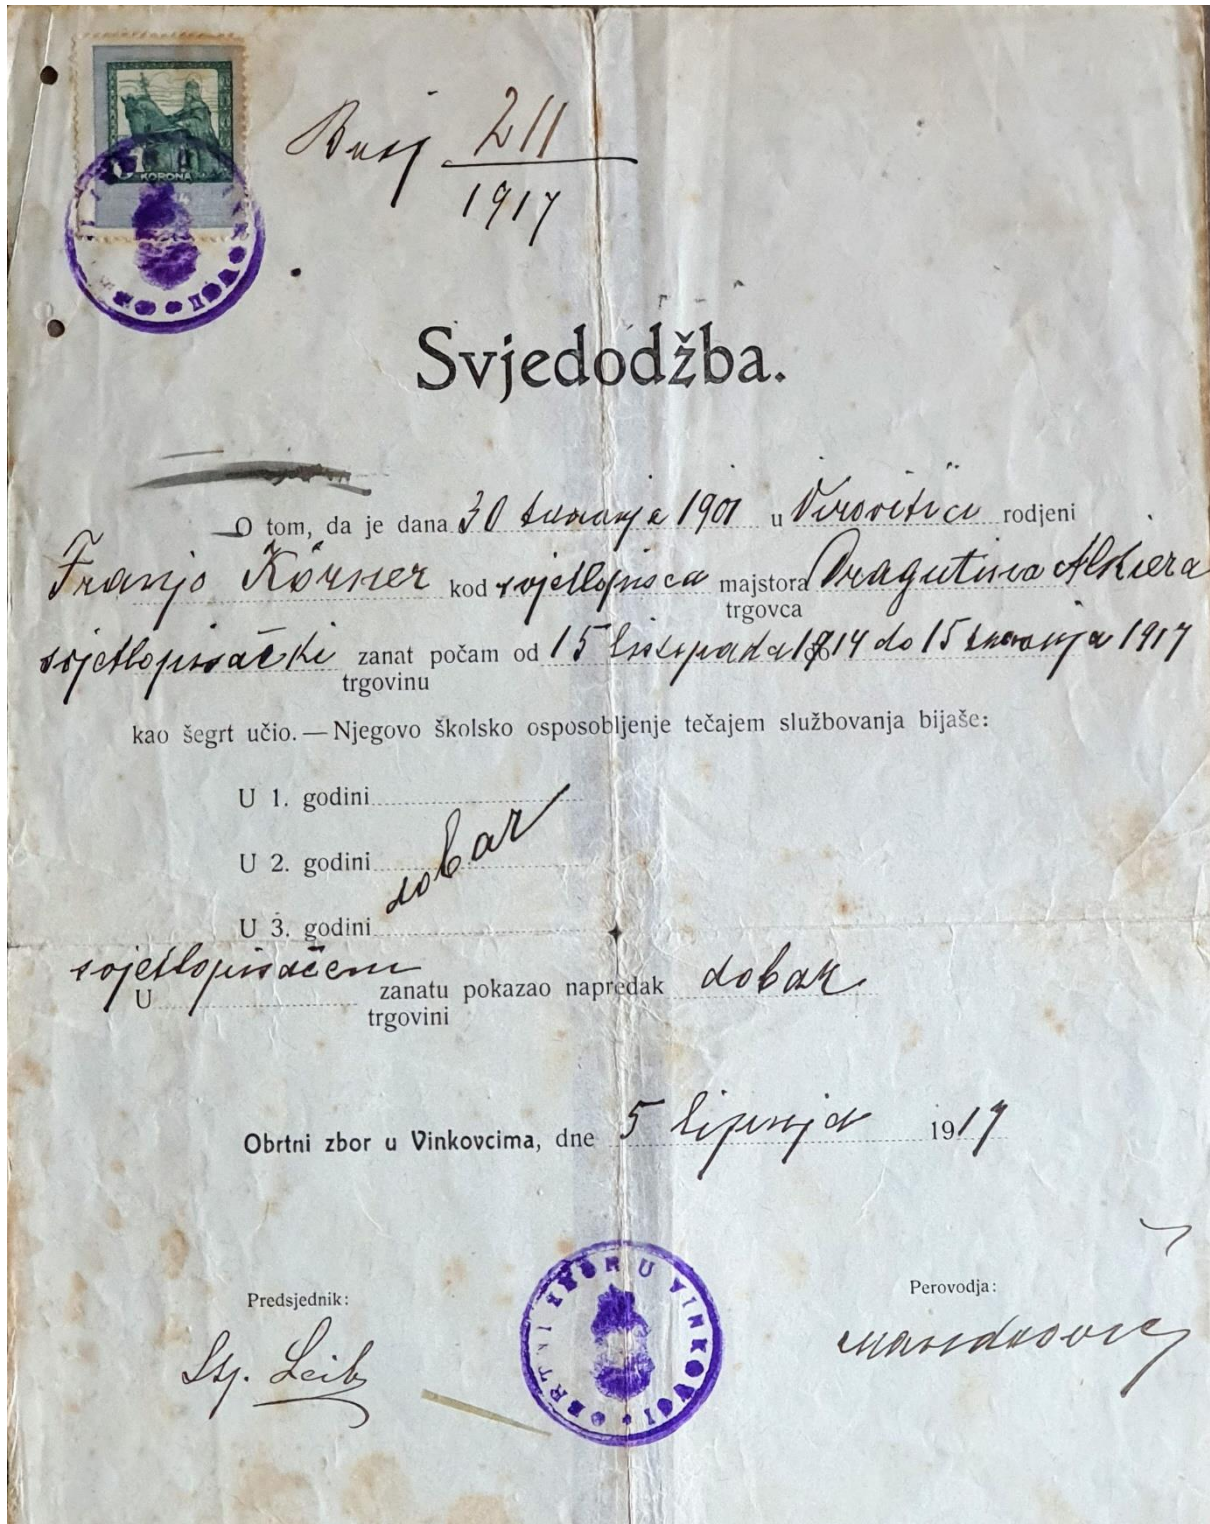 1 KORONA
Broj 211
1917
Svjedodžba.
O tom, da je dana 30 travnja 1901 u Virovitici rodjeni
Franjo Körner kod svjetlopisca majstora Dragutina Alkiera
trgovca
svjetlopisački zanat počam od 15 listopada 1914 do 15 travnja 1917
trgovinu
kao šegrt učio. — Njegovo školsko osposobljenje tečajem službovanja bijaše:
U 1. godini
U 2. godini dobar
U 3. godini
U svjetlopisačem zanatu pokazao napredak dobar
trgovini
Obrtni zbor u Vinkovcima, dne 5 lipnja 1917
Predsjednik:
Perovodja:
Stj. Leib
OBRTNI ZBOR U VINKOVCI